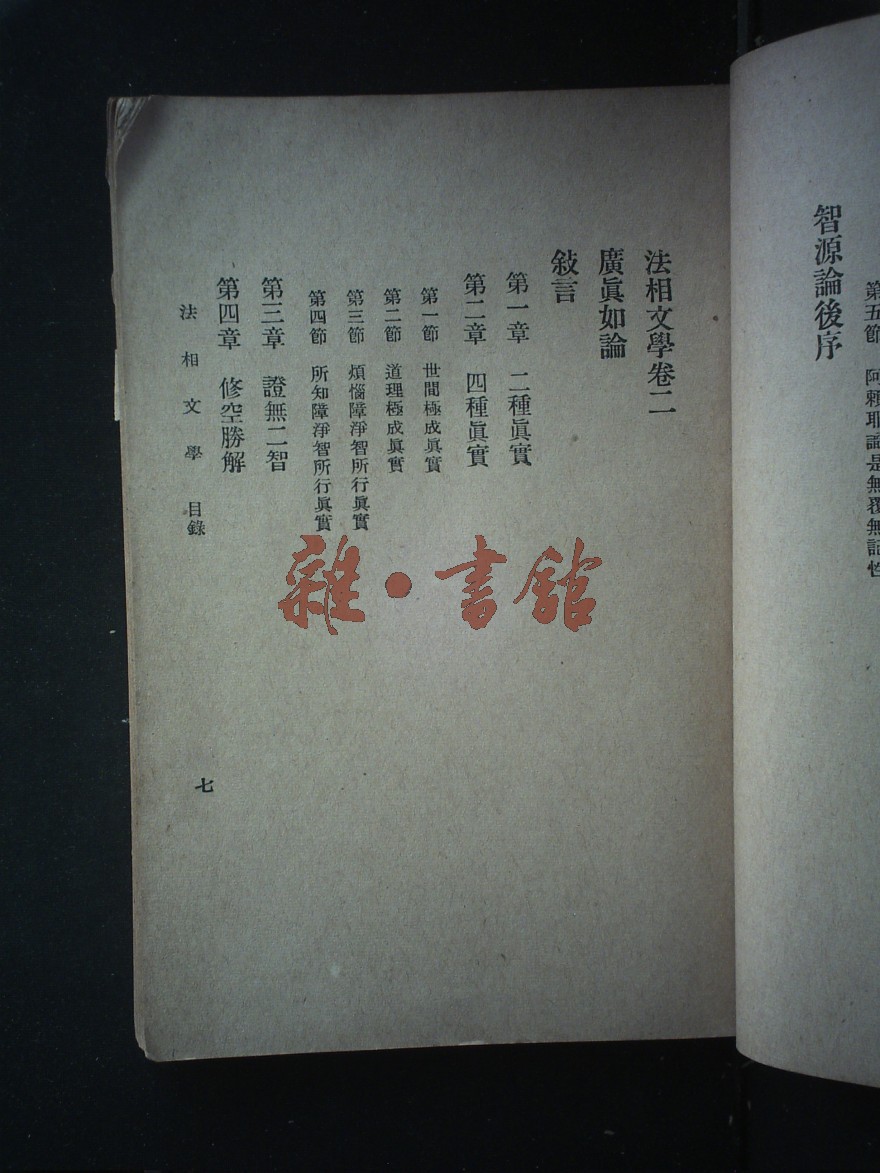 第五節 阿賴耶識是無覆無記性
智源論後序
法相文學卷二
廣眞如論
敍言
第一章 二種眞實
第二章 四種眞實
第一節 世間極成眞實
第二節 道理極成眞實
第三節 煩惱障淨智所行眞實
第四節 所知障淨智所行眞實
第三章 證無二智
第四章 修空勝解
法相文學 目錄
七
雜·書館